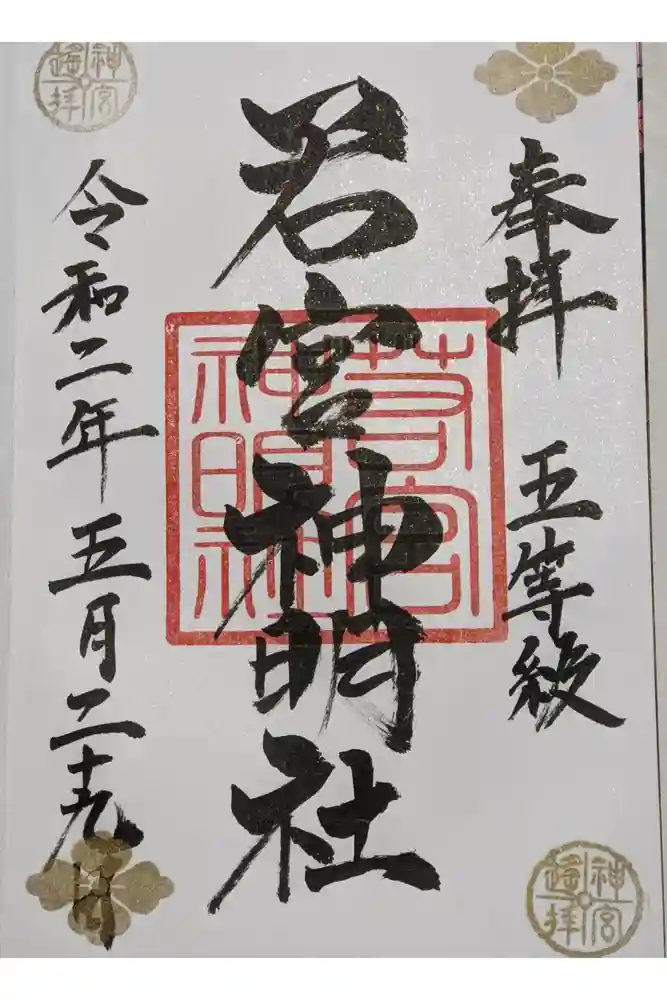 奉拝
五等級
若宮神明社
若宮
神明社
令和二年五月二十九日
神宮
遙拝
神宮
遙拝